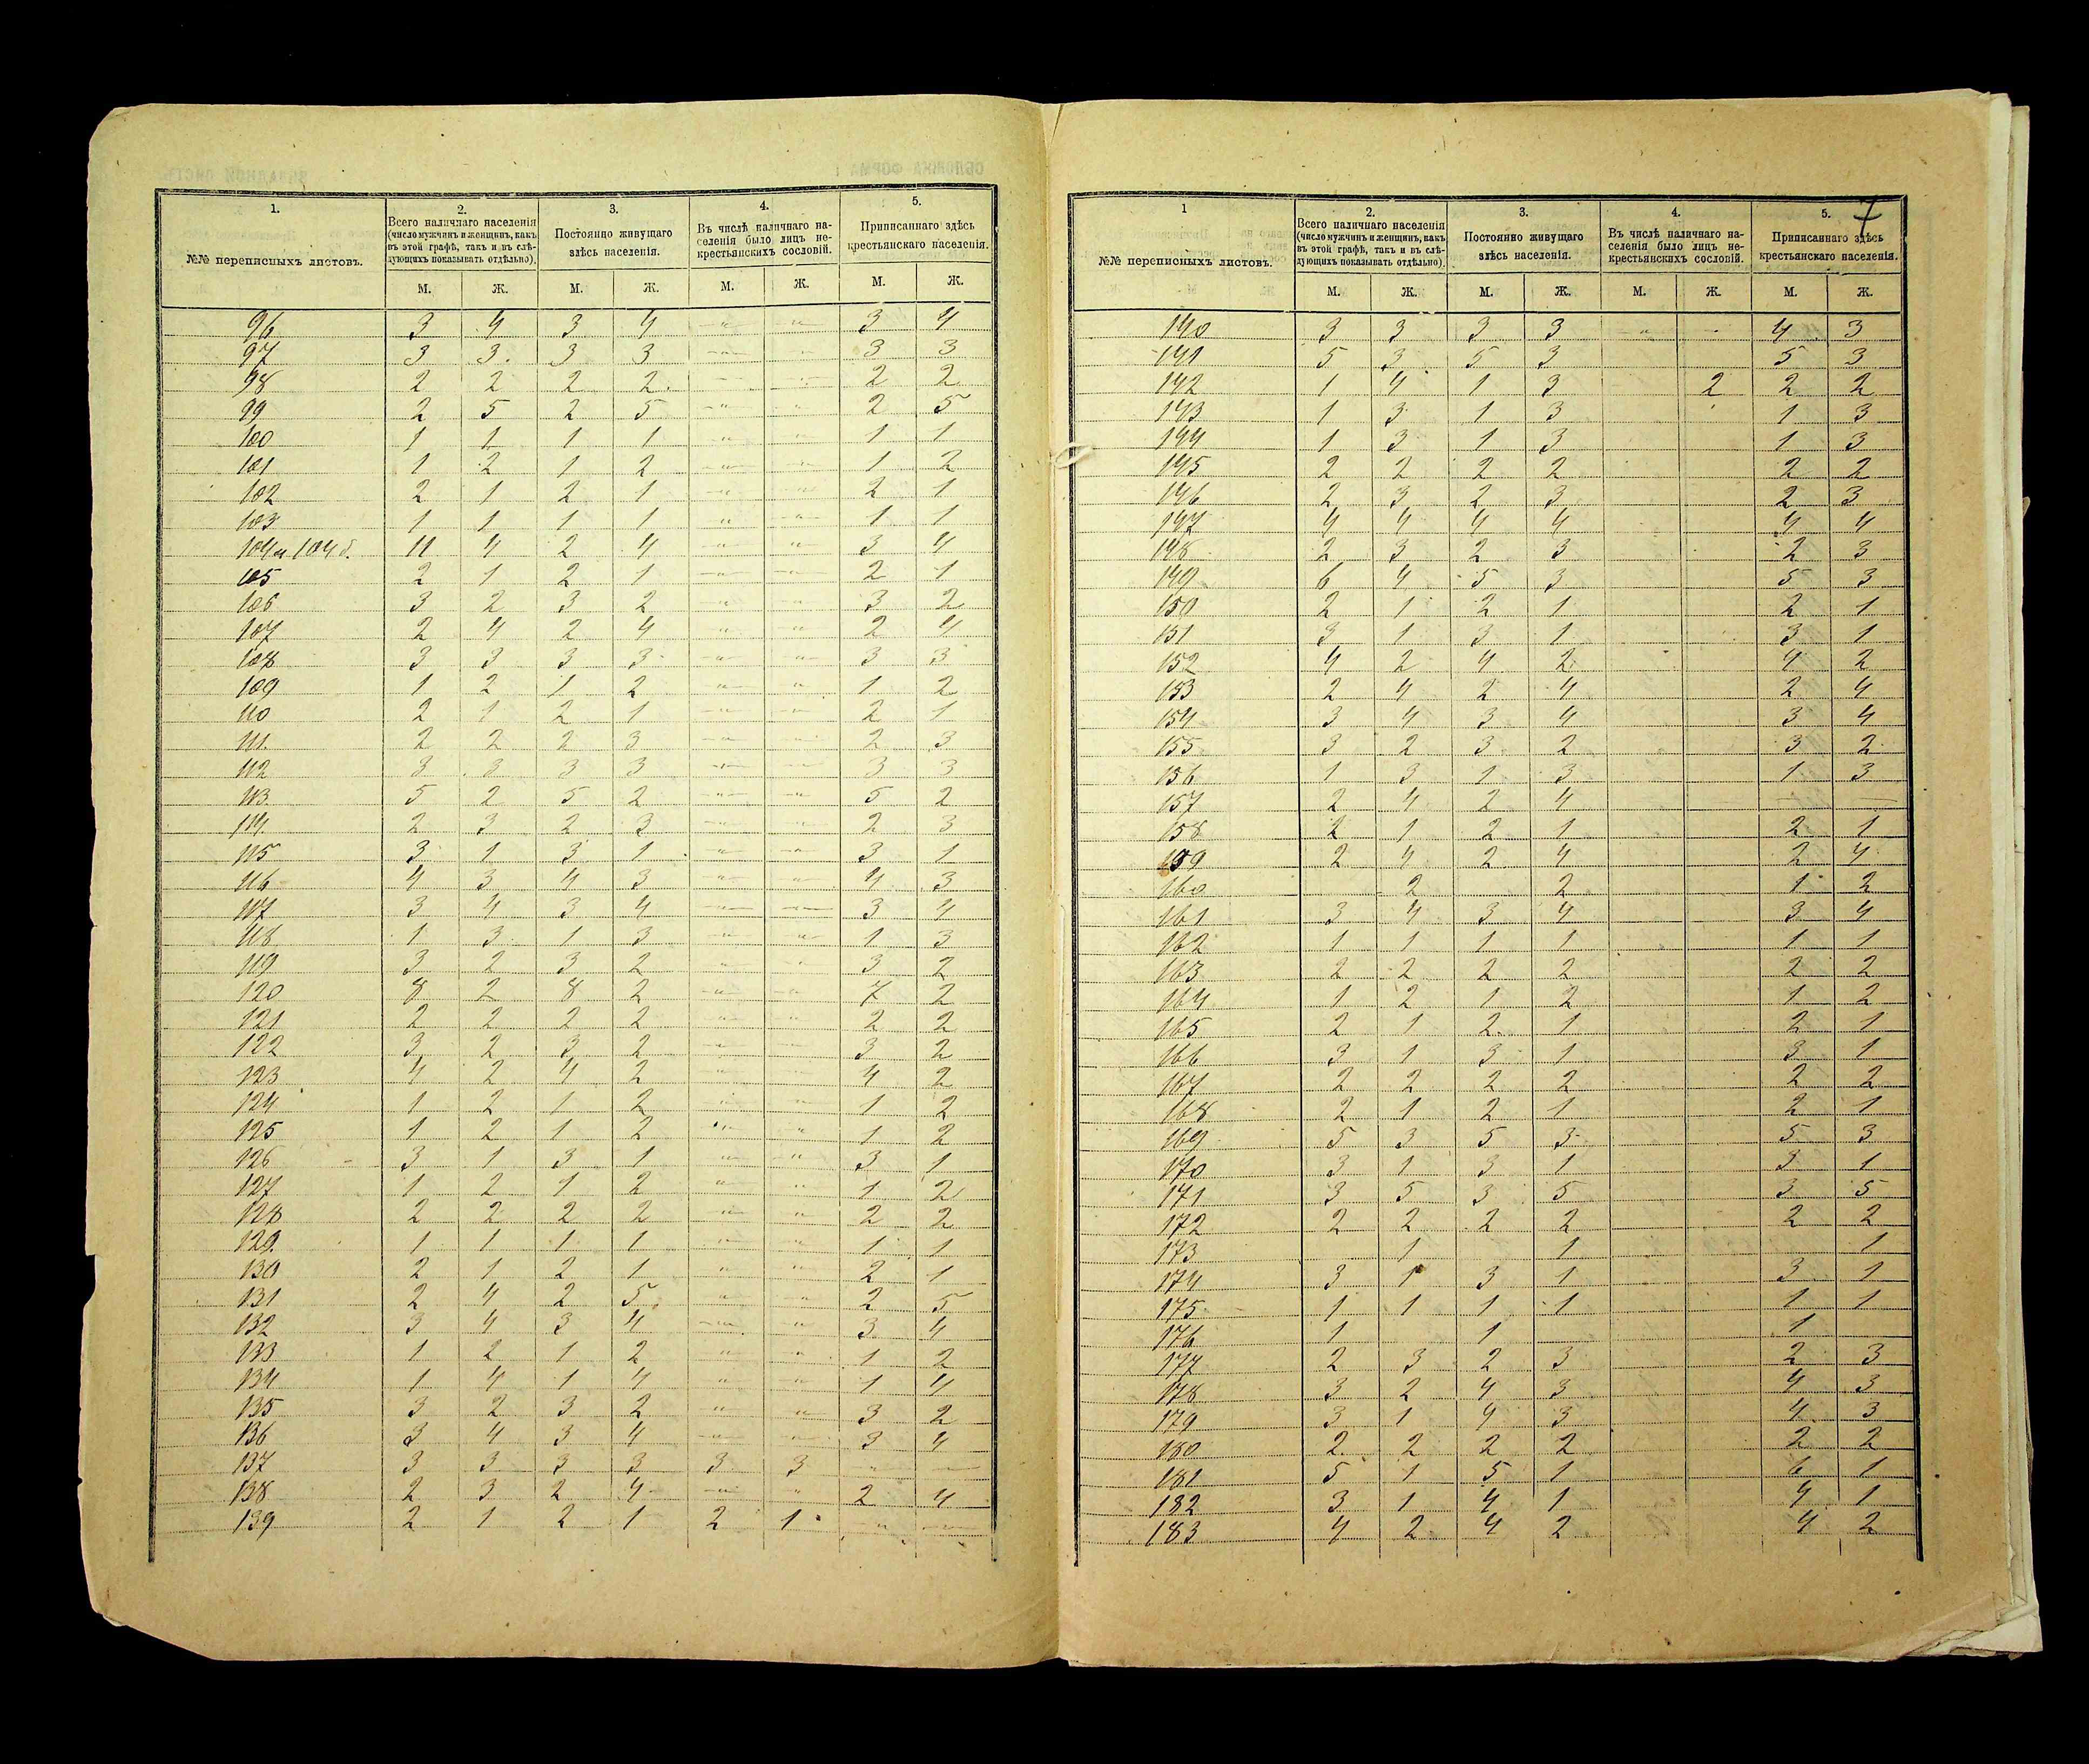 1. 2. 3. 4. 5.
№№ переписныхъ листовъ.
Всего наличнаго населенія
(число мужчинъ и женщинъ, какъ
въ этой графѣ, такъ и въ слѣ-
дующихъ показывать отдѣльно).
Постоянно живущаго
здѣсь населенія.
Въ числѣ наличнаго на-
селенія было лицъ не-
крестьянскихъ сословій.
Приписаннаго здѣсь
крестьянскаго населенія.
М. Ж. М. Ж. М. Ж. М. Ж.
96 3 4 3 4 -"- -"- 3 4
97 3 3 3 3 -"- -"- 3 3
98 2 2 2 2 - - 2 2
99 2 5 2 5 -"- " 2 5
100 1 1 1 1 " " 1 1
101 1 2 1 2 -"- -"- 1 2
102 2 1 2 1 " " 2 1
103 1 1 1 1 " -"- 1 1
104 и 104 б. 11 4 2 4 -"- " 3 4
105 2 1 2 1 " -"- 2 1
106 3 2 3 2 " " 3 2
107 2 4 2 4 " " 2 4
108 3 3 3 3 " -"- 3 3
109 1 2 1 2 -"- " 1 2
110 2 1 2 1 -"- -"- 2 1
111. 2 2 2 3 -"- -"- 2 3
112 3 3 3 3 -"- -"- 3 3
113. 5 2 5 2 -"- -"- 5 2
114 2 3 2 3 -"- -"- 2 3
115 3 1 3 1 " -"- 3 1
116 4 3 4 3 " " 4 3
117 3 4 3 4 -"- -"- 3 4
118 1 3 1 3 " -"- 1 3
119 3 2 3 2 " " 3 2
120 8 2 8 2 -"- -"- 7 2
121 2 2 2 2 -"- " 2 2
122 3 2 3 2 -"- -"- 3 2
123 4 2 4 2 " " 4 2
124 1 2 1 2 " " 1 2
125 1 2 1 2 " " 1 2
126 3 1 3 1 -"- -"- 3 1
127 1 2 1 2 " " 1 2
128 2 2 2 2 -"- " 2 2
129. 1 1 1 1 -"- " 1 1
130 2 1 2 1 " " 2 1
131 2 4 2 5 " " 2 5
132 3 4 3 4 -"- " 3 4
133 1 2 1 2 " " 1 2
134 1 4 1 4 " " 1 4
135 3 2 3 2 " " 3 2
136 3 4 3 4 -"- -"- 3 4
137 3 3 3 3 3 3 " -"-
138 2 3 2 4 -"- " 2 4
139 2 1 2 1 2 1 " -"-
7
1 2. 3. 4. 5.
№№ переписныхъ листовъ.
Всего наличнаго населенія
(число мужчинъ и женщинъ, какъ
въ этой графѣ, такъ и въ слѣ-
дующихъ показывать отдѣльно)
Постоянно живущаго
здѣсь населенія.
Въ числѣ наличнаго на-
селенія было лицъ не-
крестьянскихъ сословій.
Приписаннаго здѣсь
крестьянскаго населенія.
М. Ж. М. Ж. М. Ж. М. Ж.
140 3 3 3 3 -"- - 4 3
141 5 3 5 3 5 3
142 1 4 1 3 2 2 2
143 1 3 1 3 1 3
144 1 3 1 3 1 3
145 2 2 2 2 2 2
146 2 3 2 3 2 3
147 4 4 4 4 4 4
148 2 3 2 3 2 3
149 6 4 5 3 5 3
150 2 1 2 1 2 1
151 3 1 3 1 3 1
152 4 2 4 2 4 2
153 2 4 2 4 2 4
154 3 4 3 4 3 4
155 3 2 3 2 3 2
156 1 3 1 3 1 3
157 2 4 2 4 — —
158 2 1 2 1 2 1
159 2 4 2 4 2 4
160 2 2 1 2
161 3 4 3 4 3 4
162 1 1 1 1 1 1
163 2 2 2 2 2 2
164 1 2 1 2 1 2
165 2 1 2 1 2 1
166 3 1 3 1 3 1
167 2 2 2 2 2 2
168 2 1 2 1 2 1
169 5 3 5 3 5 3
170 3 1 3 1 3 1
171 3 5 3 5 3 5
172 2 2 2 2 2 2
173 1 1 1
174 3 1 3 1 3 1
175 1 1 1 1 1 1
176 1 1 1
177 2 3 2 3 2 3
178 3 2 4 3 4 3
179 3 1 4 3 4 3
180 2 2 2 2 2 2
181 5 1 5 1 6 1
182 3 1 4 1 4 1
183 4 2 4 2 4 2